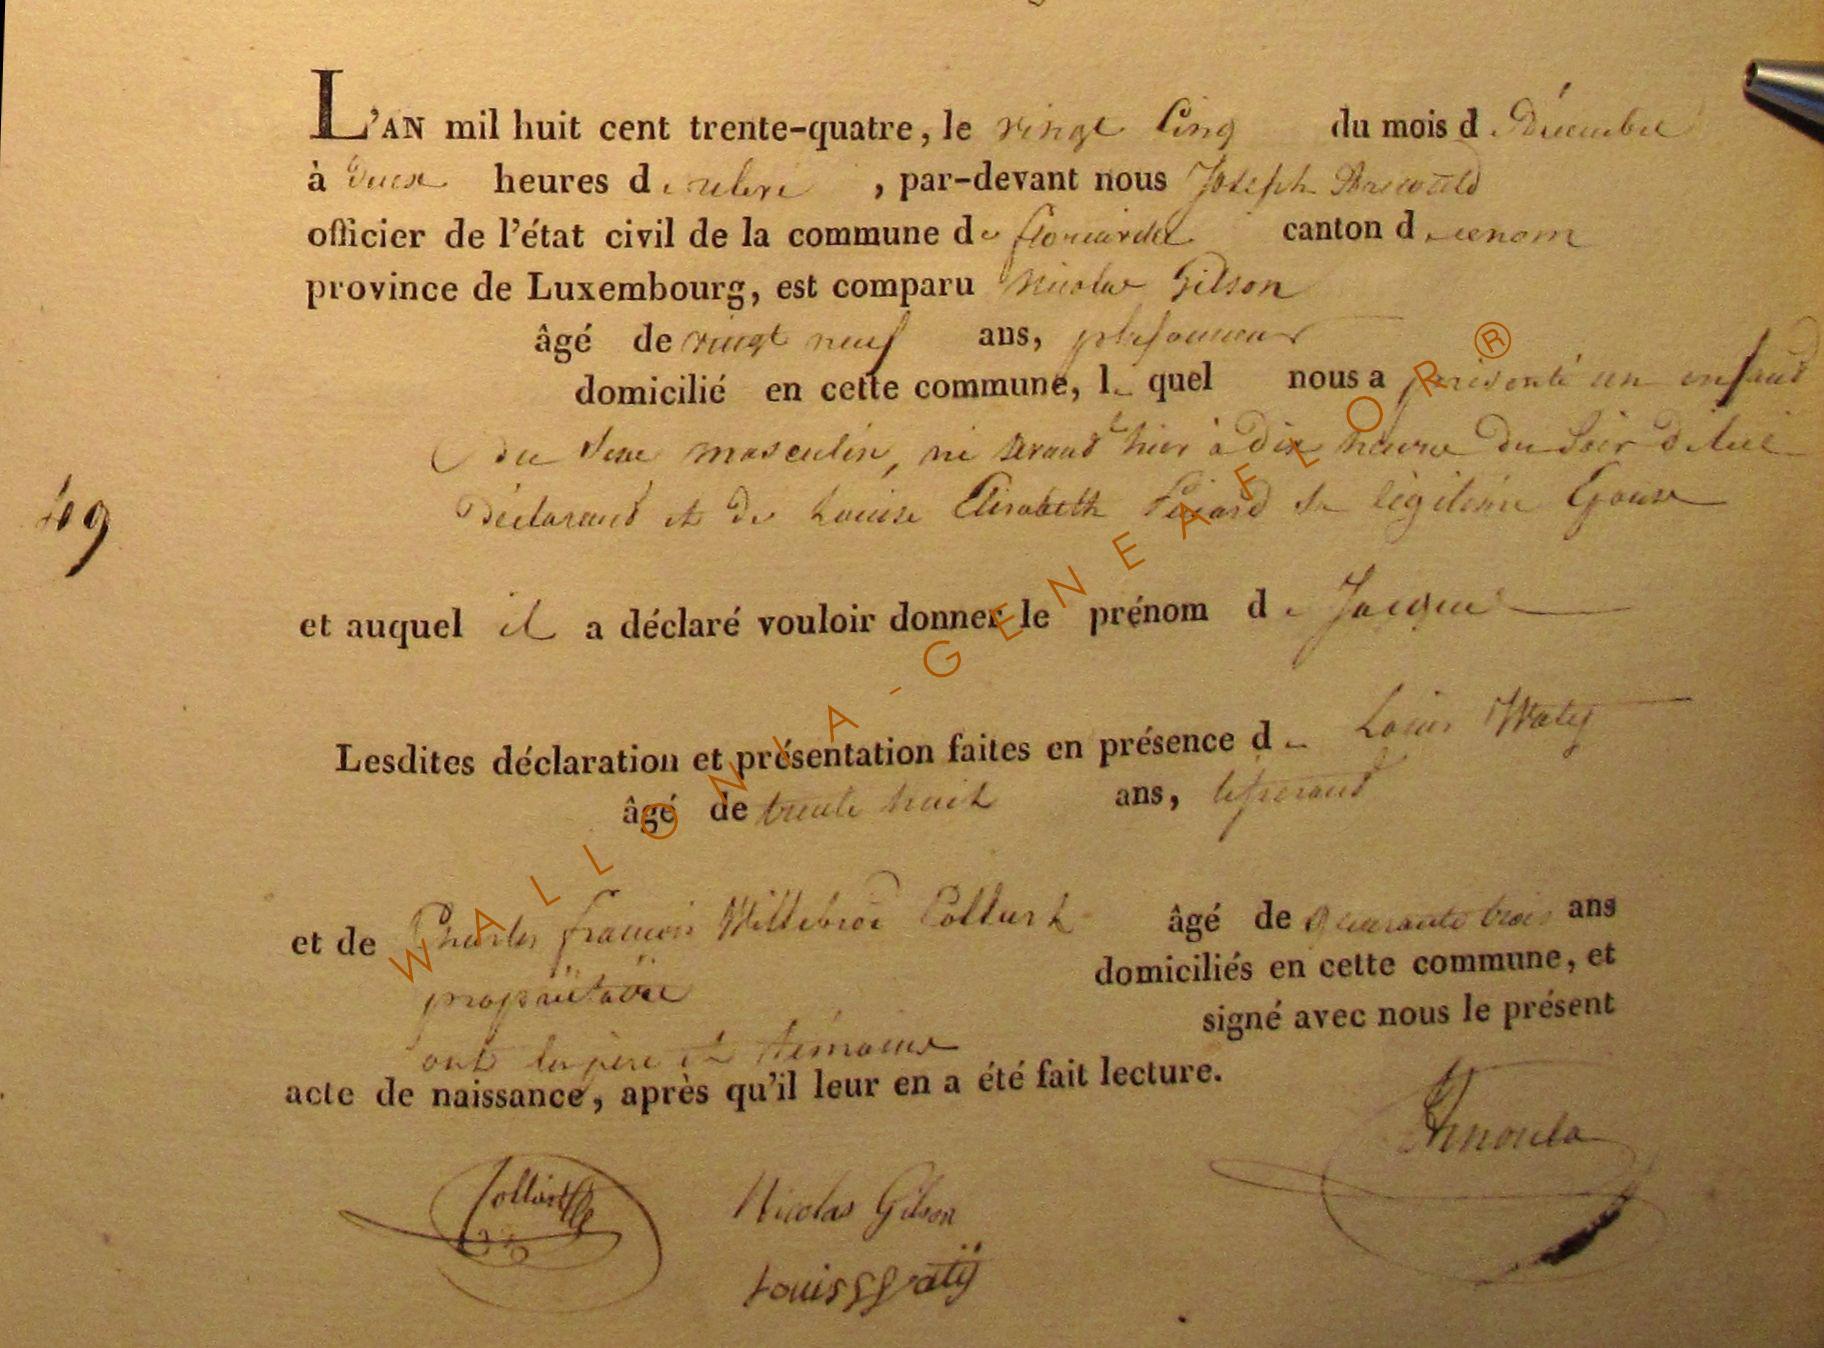 L'AN mil huit cent trente-quatre, le vingt Cinq du mois de Décembre
à deux heures de relevé, par-devant nous Joseph Arnould
officier de l'état civil de la commune de canton de
province de Luxembourg, est comparu Nicolas Gilson
âgé de vingt neuf ans, plafonneur
domicilié en cette commune, lequel nous a présenté un enfand
du sexe masculin, né hier à Dix heures du Soir de lui
49
Déclarand et de Louise Elisabeth sa légitime Epouse
et auquel il a déclaré vouloir donner le prénom de Jacques
Lesdites déclaration et présentation faites en présence de Louis Watÿ
âgé de trente huit ans, tisserand
et de Charles françois Willebrod Collart âgé de quarante trois ans
domiciliés en cette commune, et
propriétaire
signé avec nous le présent
ont les père et témoins
acte de naissance, après qu'il leur en a été fait lecture.
Arnould
Collart
Nicolas Gilson
Louis Watÿ
WALLONIA-GENEAFLOR®